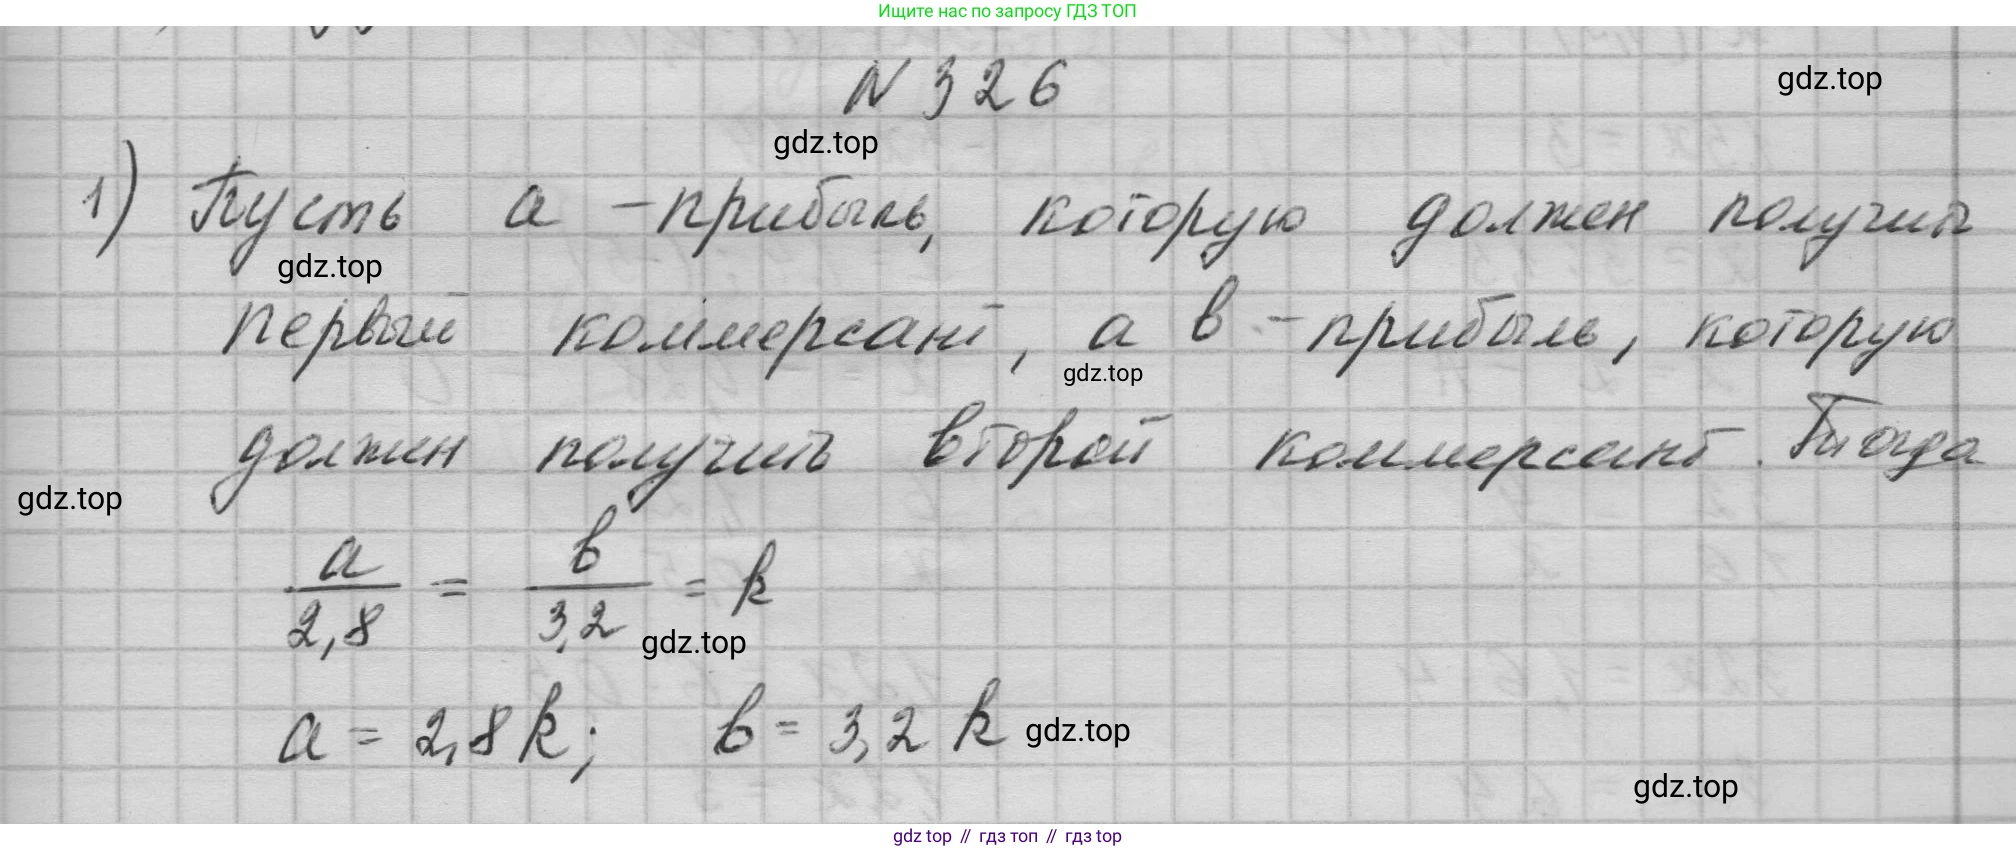 Ищите нас по запросу ГДЗ ТОП
N 326
gdz.top
gdz.top
1) Пусть a - прибыль, которую должен получить
gdz.top
первый коммерсант, а b - прибыль, которую
gdz.top
должен получить второй коммерсант. Тогда
gdz.top
a/2,8 = b/3,2 = k
gdz.top
a = 2,8k; b = 3,2k
gdz.top
gdz.top
gdz top // гдз топ // гдз top